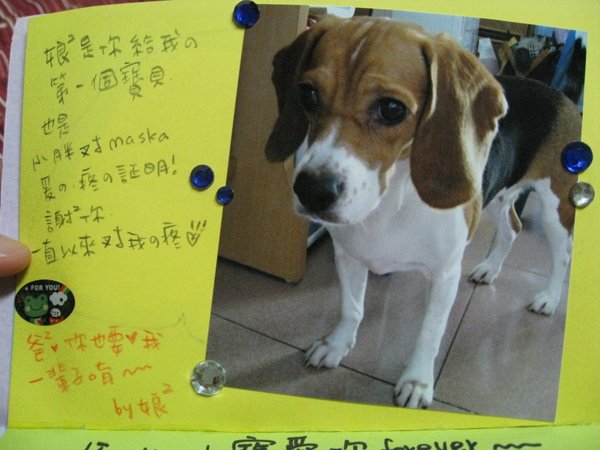 娘² 是你給我の
第一個寶貝.
也是
小胖对maska
愛の.疼の証明!
謝² 你
一直以來对我の疼
FOR YOU!
爸² ♥你也要♥我
一輩子唷~~
by 娘²
寶愛你 forever ~~